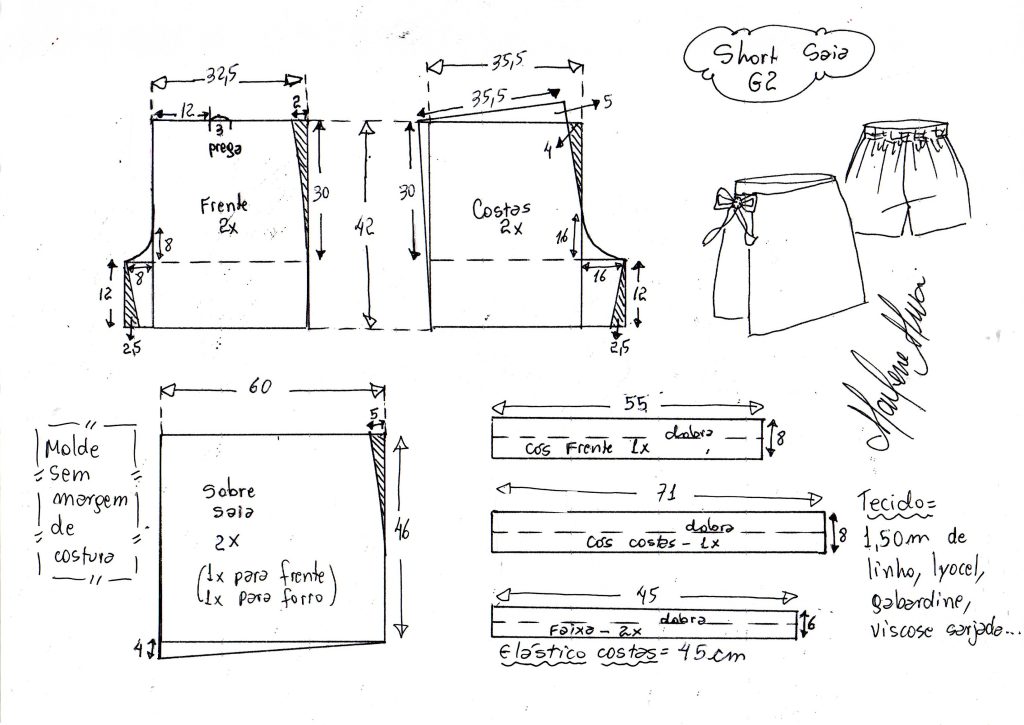 Short Saia
G2
32,5
12
2
3
prega
30
Frente
2x
8
8
12
2,5
42
35,5
35,5
5
4
30
Costas
2x
16
16
12
2,5
60
5
46
4
Sobre
saia
2x
(1x para frente
1x para forro)
Molde
sem
margem
de
costura
55
dobra
Cós Frente 1x
8
71
dobra
Cós costas - 1x
8
45
dobra
Faixa - 2x
6
Elástico costas = 45 cm
Tecido =
1,50m de
linho, lyocel,
gabardine,
viscose sarjada...